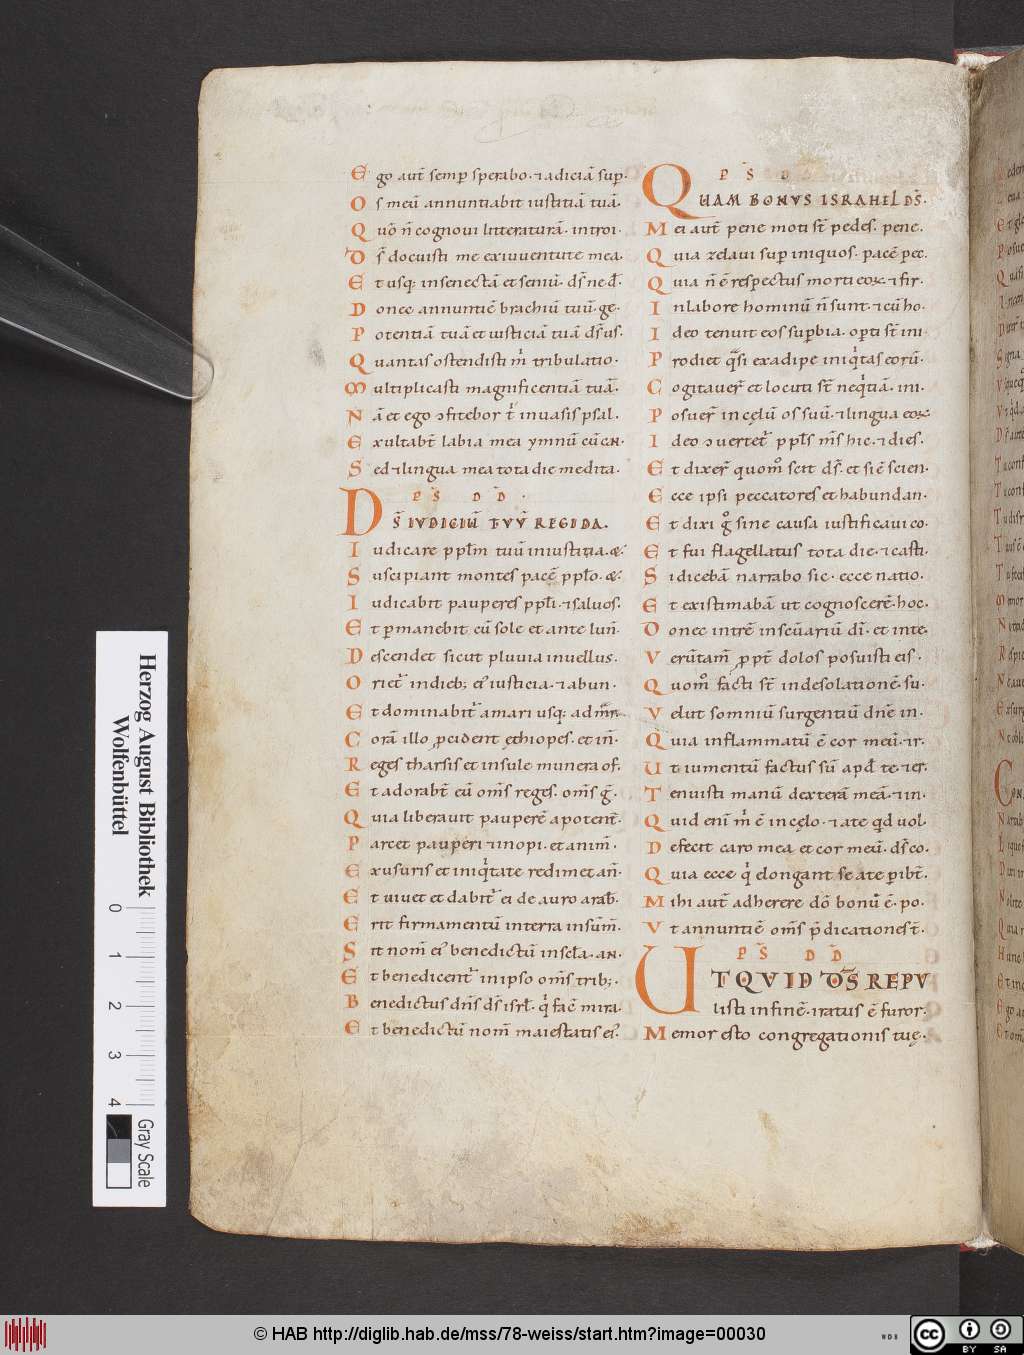 Ego aut̄ semp̄ sperabo· ⁊adiciā sup̄·
Os meū annuntiabit iustitiā tuā·
Quō n̄ cognoui litteraturā· introi·
Ds̄ docuisti me exiuuentute mea·
Et usq; insenectā et seniū· ds̄ ne đ·
Donec annuntiē brachiū tuū· ge·
Potentiā tuā et iusticiā tuā ds̄ us·
Quantas ostendisti m̄ tribulatio·
Multiplicasti magnificentiā tuā·
Nā et ego ↄfitebor t̄ inuasis psal·
Exultabt̄ labia mea ymnū cū can·
Sed ⁊lingua mea tota die medita·
PS̄ DD̄·
DS̄ IUDICIŪ TUŪ REGI DA·
Iudicare ppl̄m tuū iniustitia· &·
Suscipiant montes pacē ppl̄o· &·
Iudicabit pauperes ppl̄i· ⁊saluos·
Et p̄manebit cū sole et ante lun̄·
Descendet sicut pluuia inuellus·
Oriet̄ indieb; ei᾽ iusticia· ⁊abun·
Et dominabit̄ amari usq; ad mar·
Corā illo ꝓcident ęthiopes· et in̄·
Reges tharsis et insule munera of·
Et adorabt̄ eū om̄s reges· om̄s ḡ·
Quia liberauit pauperē apotent̄·
Parcet pauperi ⁊inopi· et anim̄·
Exusuris et iniq̇tate redimet an̄·
Et uiuet et dabit̄ ei de auro arab̄·
Erit firmamentū interra insūm̄·
Sit nom̄ ei᾽ benedictū insc̄la· an·
Et benedicent̄ inipso om̄s trib;·
Benedictus dn̄s ds̄ isrl̄· q̇ facē mira·
Et benedictū nom̄ maiestatis ei᾽·
PS̄ D
QUAM BONUS ISRAHEL DS̄·
Mei aut̄ pene moti st̄ pedes· pene·
Quia zelaui sup̄ iniquos· pacē pec·
Quia n̄ ē respectus morti eoꝝ ⁊fir·
Inlabore hominū n̄ sunt· ⁊cū ho·
Ideo tenuit eos sup̄bia· op̄ti st̄ ini·
Prodiet qͣsi exadipe iniq̇tas eorū·
Cogitauer̄ et locuti st̄ neq̇tiā· ini·
Posuer̄ incęlū os suū· ⁊lingua eoꝝ·
Ideo ↄuertet̄ ppl̄s m̄s hic· ⁊dies·
Et dixer̄ quom̊ scit ds̄· et si ē scien·
Ecce ipsi peccatores et habundan·
Et dixi g̊ sine causa iustificaui co·
Et fui flagellatus tota die· ⁊casti·
Si dicebā narrabo sic· ecce natio·
Et existimabā ut cognoscerē· hoc·
Donec intrē insc̄uariū dī· et inte·
Uerūtam̄ ꝓpt̄ dolos posuisti eis·
Quom̊ facti st̄ indesolationē· su·
Uelut somniū surgentiū dn̄e in·
Quia inflammatū ē cor meū· ⁊r·
Ut iumentū factus sū apđ te· ⁊er·
Tenuisti manū dexterā meā· ⁊in·
Quid eni m̄ ē incęlo· ⁊ate qd uol·
Defecit caro mea et cor meū· ds̄ co·
Quia ecce q̇ elongant se ate p̄ibt̄·
Mihi aut̄ adherere dō bonū ē· po·
Ut annuntiē om̄s p̄dicationes t̄·
PS̄ DD̄
UT QUID DS̄ REPU
listi infinē· iratus ē furor·
Memor esto congregationis tuę·
Herzog August Bibliothek
Wolfenbüttel
0 1 2 3 4
Gray Scale
© HAB http://diglib.hab.de/mss/78-weiss/start.htm?image=00030
WDB
cc BY SA